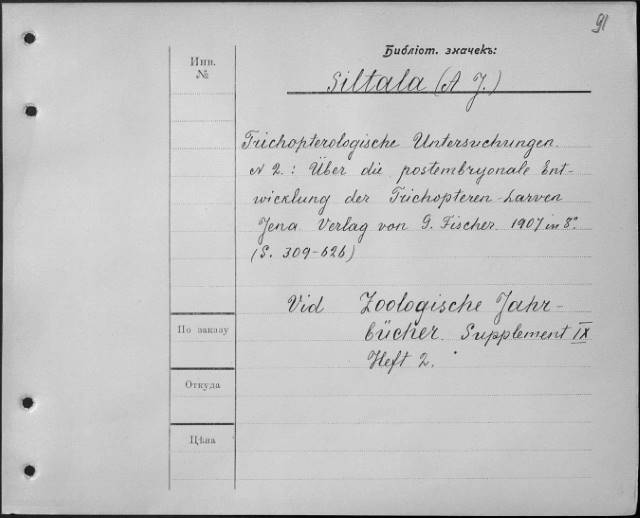 91
Библіот. значекъ:
Инв.
№
Siltala (A J.)
Trichopterologische Untersuchungen.
N 2.: Über die postembryonale Ent-
wicklung der Trichopteren-Larven
Jena Verlag von G. Fischer. 1907 in 8°
(S. 309-626)
Vid Zoologische Jahr-
bücher. Supplement IX
Heft 2.
По заказу
Откуда
Цѣна